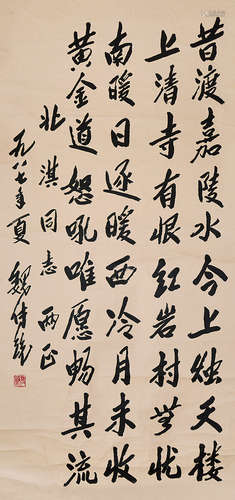 昔渡嘉陵水今上独天楼
上清寺有恨红岩村无忧
南暖日逐暖西冷月未收
黄金道怒吼唯愿畅其流
北淇同志两正
一九八七年夏 魏传统